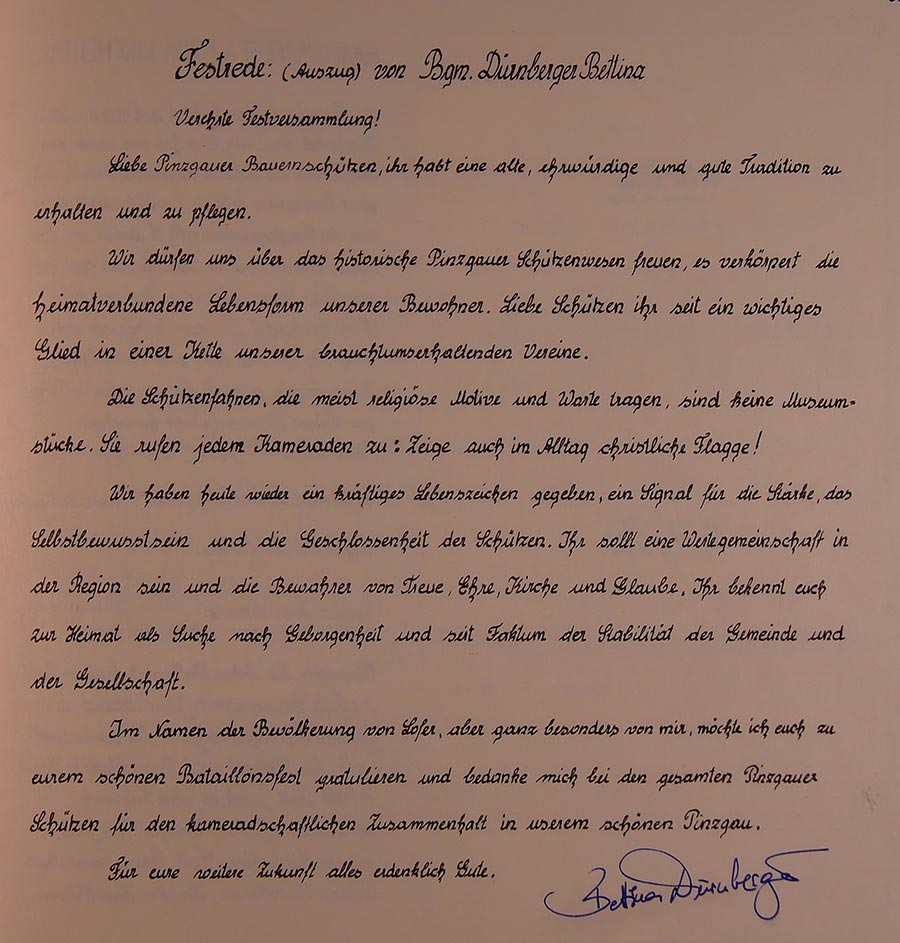 Festrede: (Auszug) von Bgm. Dürnberger Bettina
Verehrte Festversammlung!
Liebe Pinzgauer Bauernschützen, ihr habt eine alte, ehrwürdige und gute Tradition zu
erhalten und zu pflegen.
Wir dürfen uns über das historische Pinzgauer Schützenwesen freuen, es verkörpert die
heimatverbundene Lebensform unserer Bewohner. Liebe Schützen ihr seit ein wichtiges
Glied in einer Kette unserer brauchtumserhaltenden Vereine.
Die Schützenfahnen, die meist religiöse Motive und Worte tragen, sind keine Museum-
stücke. Sie rufen jedem Kameraden zu: Zeige auch im Alltag christliche Flagge!
Wir haben heute wieder ein kräftiges Lebenszeichen gegeben, ein Signal für die Stärke, das
Selbstbewusstsein und die Geschlossenheit der Schützen. Ihr sollt eine Wertegemeinschaft in
der Region sein und die Bewahrer von Treue, Ehre, Kirche und Glaube. Ihr bekennt euch
zur Heimat als Suche nach Geborgenheit und seit Faktum der Stabilität der Gemeinde und
der Gesellschaft.
Im Namen der Bevölkerung von Lofer, aber ganz besonders von mir, möchte ich euch zu
eurem schönen Bataillonsfest gratulieren und bedanke mich bei den gesamten Pinzgauer
Schützen für den kameradschaftlichen Zusammenhalt in userem schönen Pinzgau.
Für eure weitere Zukunft alles erdenklich Gute.
Bettina Dürnberger